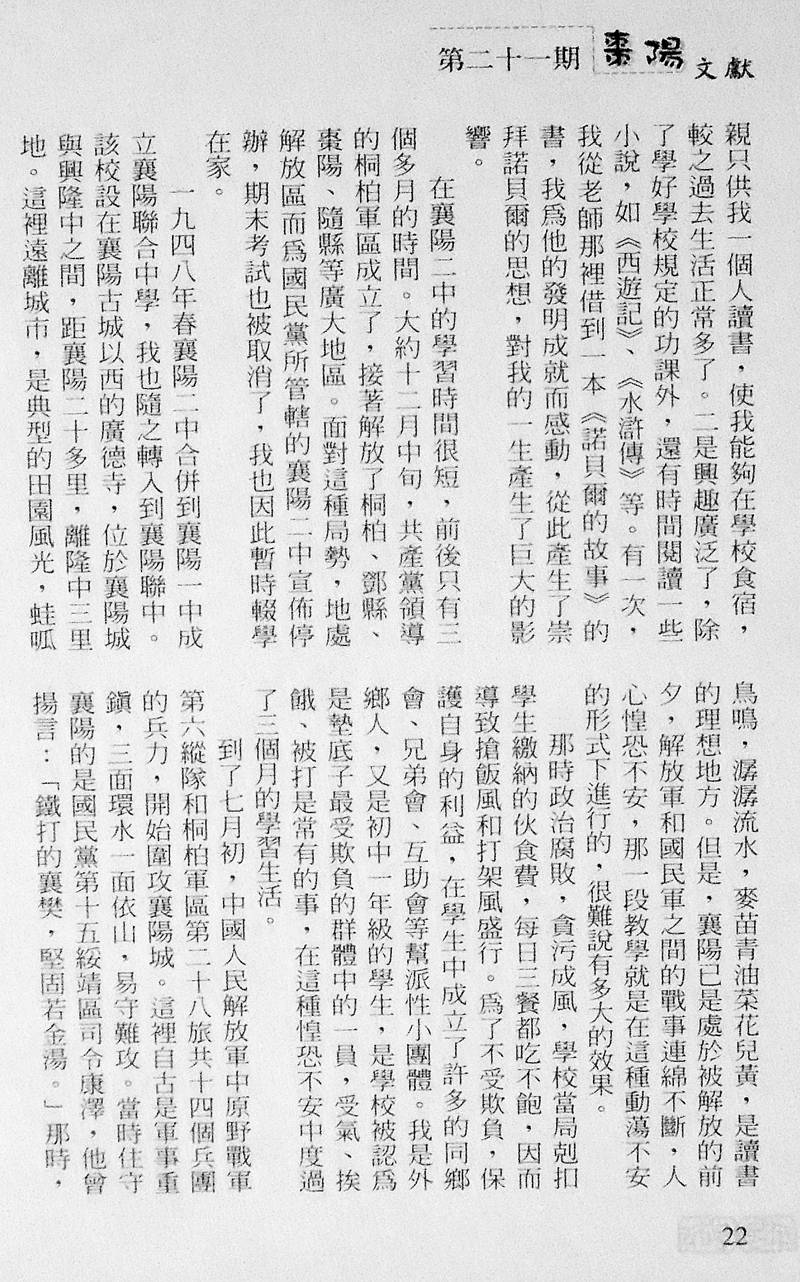 第二十一期 棗陽文獻
親只供我一個人讀書，使我能夠在學校食宿，
較之過去生活正常多了。二是興趣廣泛了，除
了學好學校規定的功課外，還有時間閱讀一些
小說，如《西遊記》、《水滸傳》等。有一次，
我從老師那裡借到一本《諾貝爾的故事》的
書，我爲他的發明成就而感動，從此產生了崇
拜諾貝爾的思想，對我的一生產生了巨大的影
響。
在襄陽二中的學習時間很短，前後只有三
個多月的時間。大約十二月中旬，共產黨領導
的桐柏軍區成立了，接著解放了桐柏、鄧縣、
棗陽、隨縣等廣大地區。面對這種局勢，地處
解放區而爲國民黨所管轄的襄陽二中宣佈停
辦，期末考試也被取消了，我也因此暫時輟學
在家。
一九四八年春襄陽二中合併到襄陽一中成
立襄陽聯合中學，我也隨之轉入到襄陽聯中。
該校設在襄陽古城以西的廣德寺，位於襄陽城
與興隆中之間，距襄陽二十多里，離隆中三里
地。這裡遠離城市，是典型的田園風光，蛙呱
鳥鳴，潺潺流水，麥苗青油菜花兒黃，是讀書
的理想地方。但是，襄陽已是處於被解放的前
夕，解放軍和國民軍之間的戰事連綿不斷，人
心惶恐不安，那一段教學就是在這種動蕩不安
的形式下進行的，很難說有多大的效果。
那時政治腐敗，貪污成風，學校當局剋扣
學生繳納的伙食費，每日三餐都吃不飽，因而
導致搶飯風和打架風盛行。爲了不受欺負，保
護自身的利益，在學生中成立了許多的同鄉
會、兄弟會、互助會等幫派性小團體。我是外
鄉人，又是初中一年級的學生，是學校被認爲
是墊底子最受欺負的群體中的一員，受氣、挨
餓、被打是常有的事，在這種惶恐不安中度過
了三個月的學習生活。
到了七月初，中國人民解放軍中原野戰軍
第六縱隊和桐柏軍區第二十八旅共十四個兵團
的兵力，開始圍攻襄陽城。這裡自古是軍事重
鎮，三面環水一面依山，易守難攻。當時住守
襄陽的是國民黨第十五綏靖區司令康澤，他曾
揚言：「鐵打的襄樊，堅固若金湯。」那時，
22